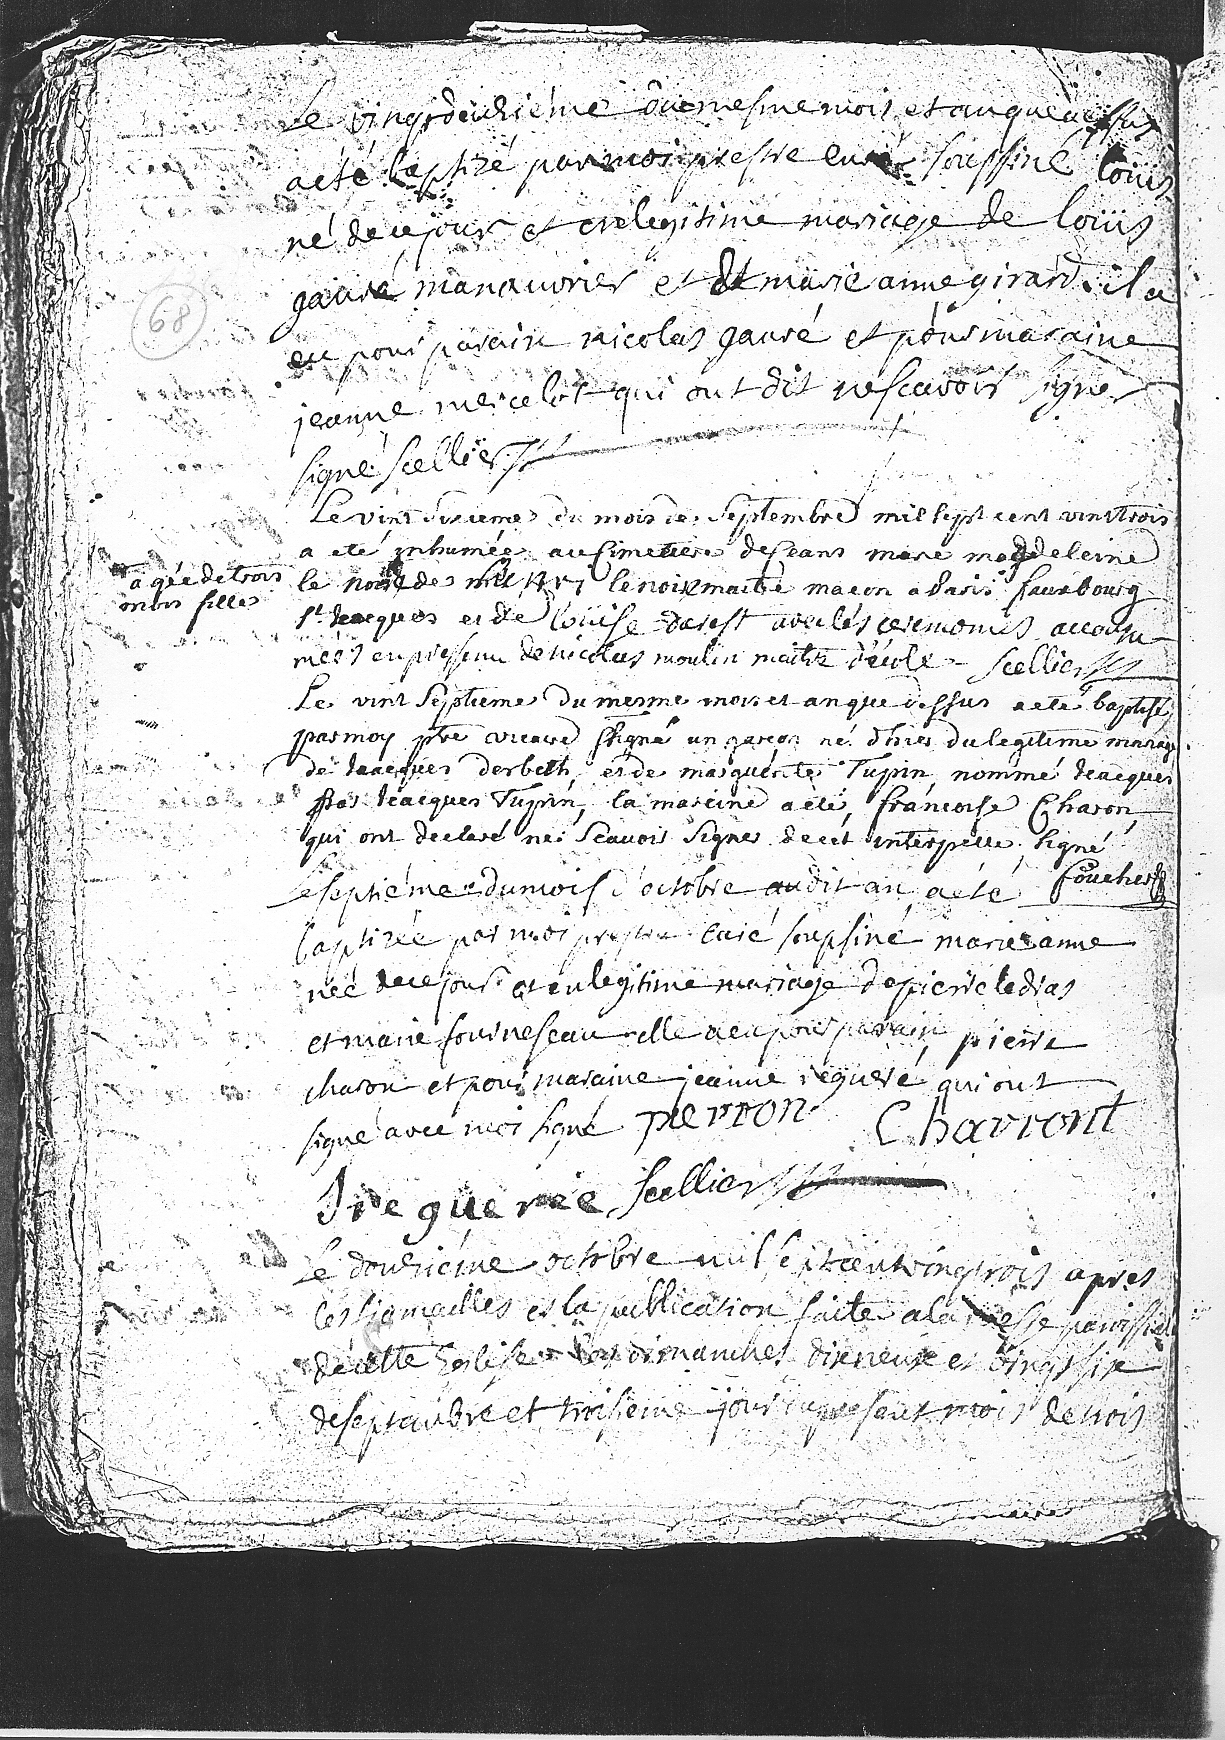 Le vingtdeuxiéme du mesme mois et an que dessus
a eté baptizé par moi prestre curé soussiné louis
né de ce jour et en legitime mariage de louis
gauré manouvrier et de marie anne girard il a
eu pour parain nicolas gauré et pour maraine
jeanne mercelot qui ont dit ne scavoir signer
signé Scellier
Le vint sixieme du mois de Septembre mil sept cent vint trois
a eté inhumée au Cimetiere de ceans marie magdeleine
agée de trois
le noir de lenoir maitre macon a Paris fauxbourg
mois fille
St Jacques et de louise darest avec les ceremonies accoutu
mées en presence de nicolas moulin maitre d'école Scellier
Le vint Septieme du mesme mois et an que dessus a eté baptisé
par moy ptre vicaire signé un garcon né d'hier du legitime mariage
de Jacques derbeth et de marguerite Tupin nommé Jacques
par Jacques Tupin, la mareine a eté francoise Charon
qui ont declaré ne Scavoir Signer de cet interpelle signé
foucher
Le septiéme du mois d'octobre audit an a eté
baptizée par moi prestre curé soussiné marie anne
née de ce jour et en legitime mariage de pierre ledias
et marie fourneseau elle a eu pour parain pierre
charon et pour maraine jeanne regueré qui ont
signé avec moi signé pierron Charront
J reguerée Scellier
Le douziéme octobre mil sept cent vingt trois apres
les fiancailles et la publication faite a la messe paroissiale
de cette Eglise les dimanches dixneuf et vingt six
de septembre et troisieme jour du present mois de trois
68